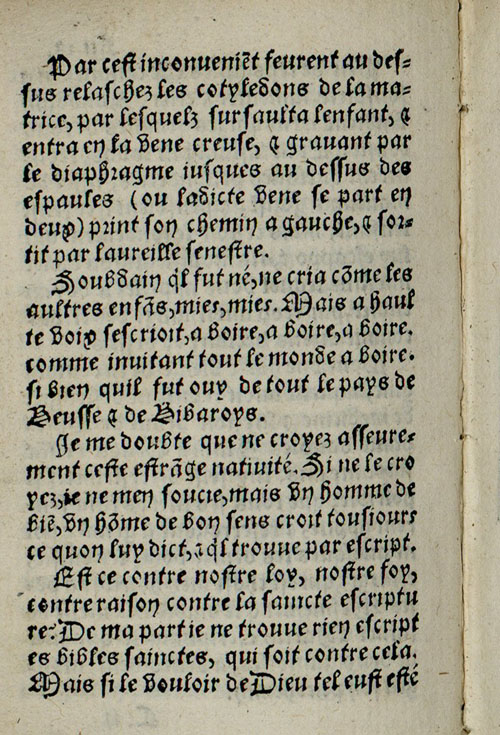 Par cest inconueniēt feurent au des=
sus relaschez les cotyledons de la ma=
trice, par lesquelz sursaulta lenfant, &
entra en la vene creuse, & grauant par
le diaphragme iusques au dessus des
espaules (ou ladicte vene se part en
deux) print son chemin a gauche, & sor=
tit par laureille senestre.
Soubdain ql fut né, ne cria cōme les
aultres enfās, mies, mies. Mais a haul
te voix sescrioit, a boire, a boire, a boire.
comme inuitant tout le monde a boire.
si bien quil fut ouy de tout le pays de
Beusse & de Bibaroys.
Je me doubte que ne croyez asseure=
ment ceste estrāge natiuité. Si ne le cro
yez, ie ne men soucie, mais vn homme de
biē, vn hōme de bon sens croit tousiours
ce quon luy dict, & ql trouue par escript.
Est ce contre nostre loy, nostre foy,
contre raison contre la saincte escriptu
re? De ma part ie ne trouue rien escript
es bibles sainctes, qui soit contre cela.
Mais si le vouloir de Dieu tel eust esté